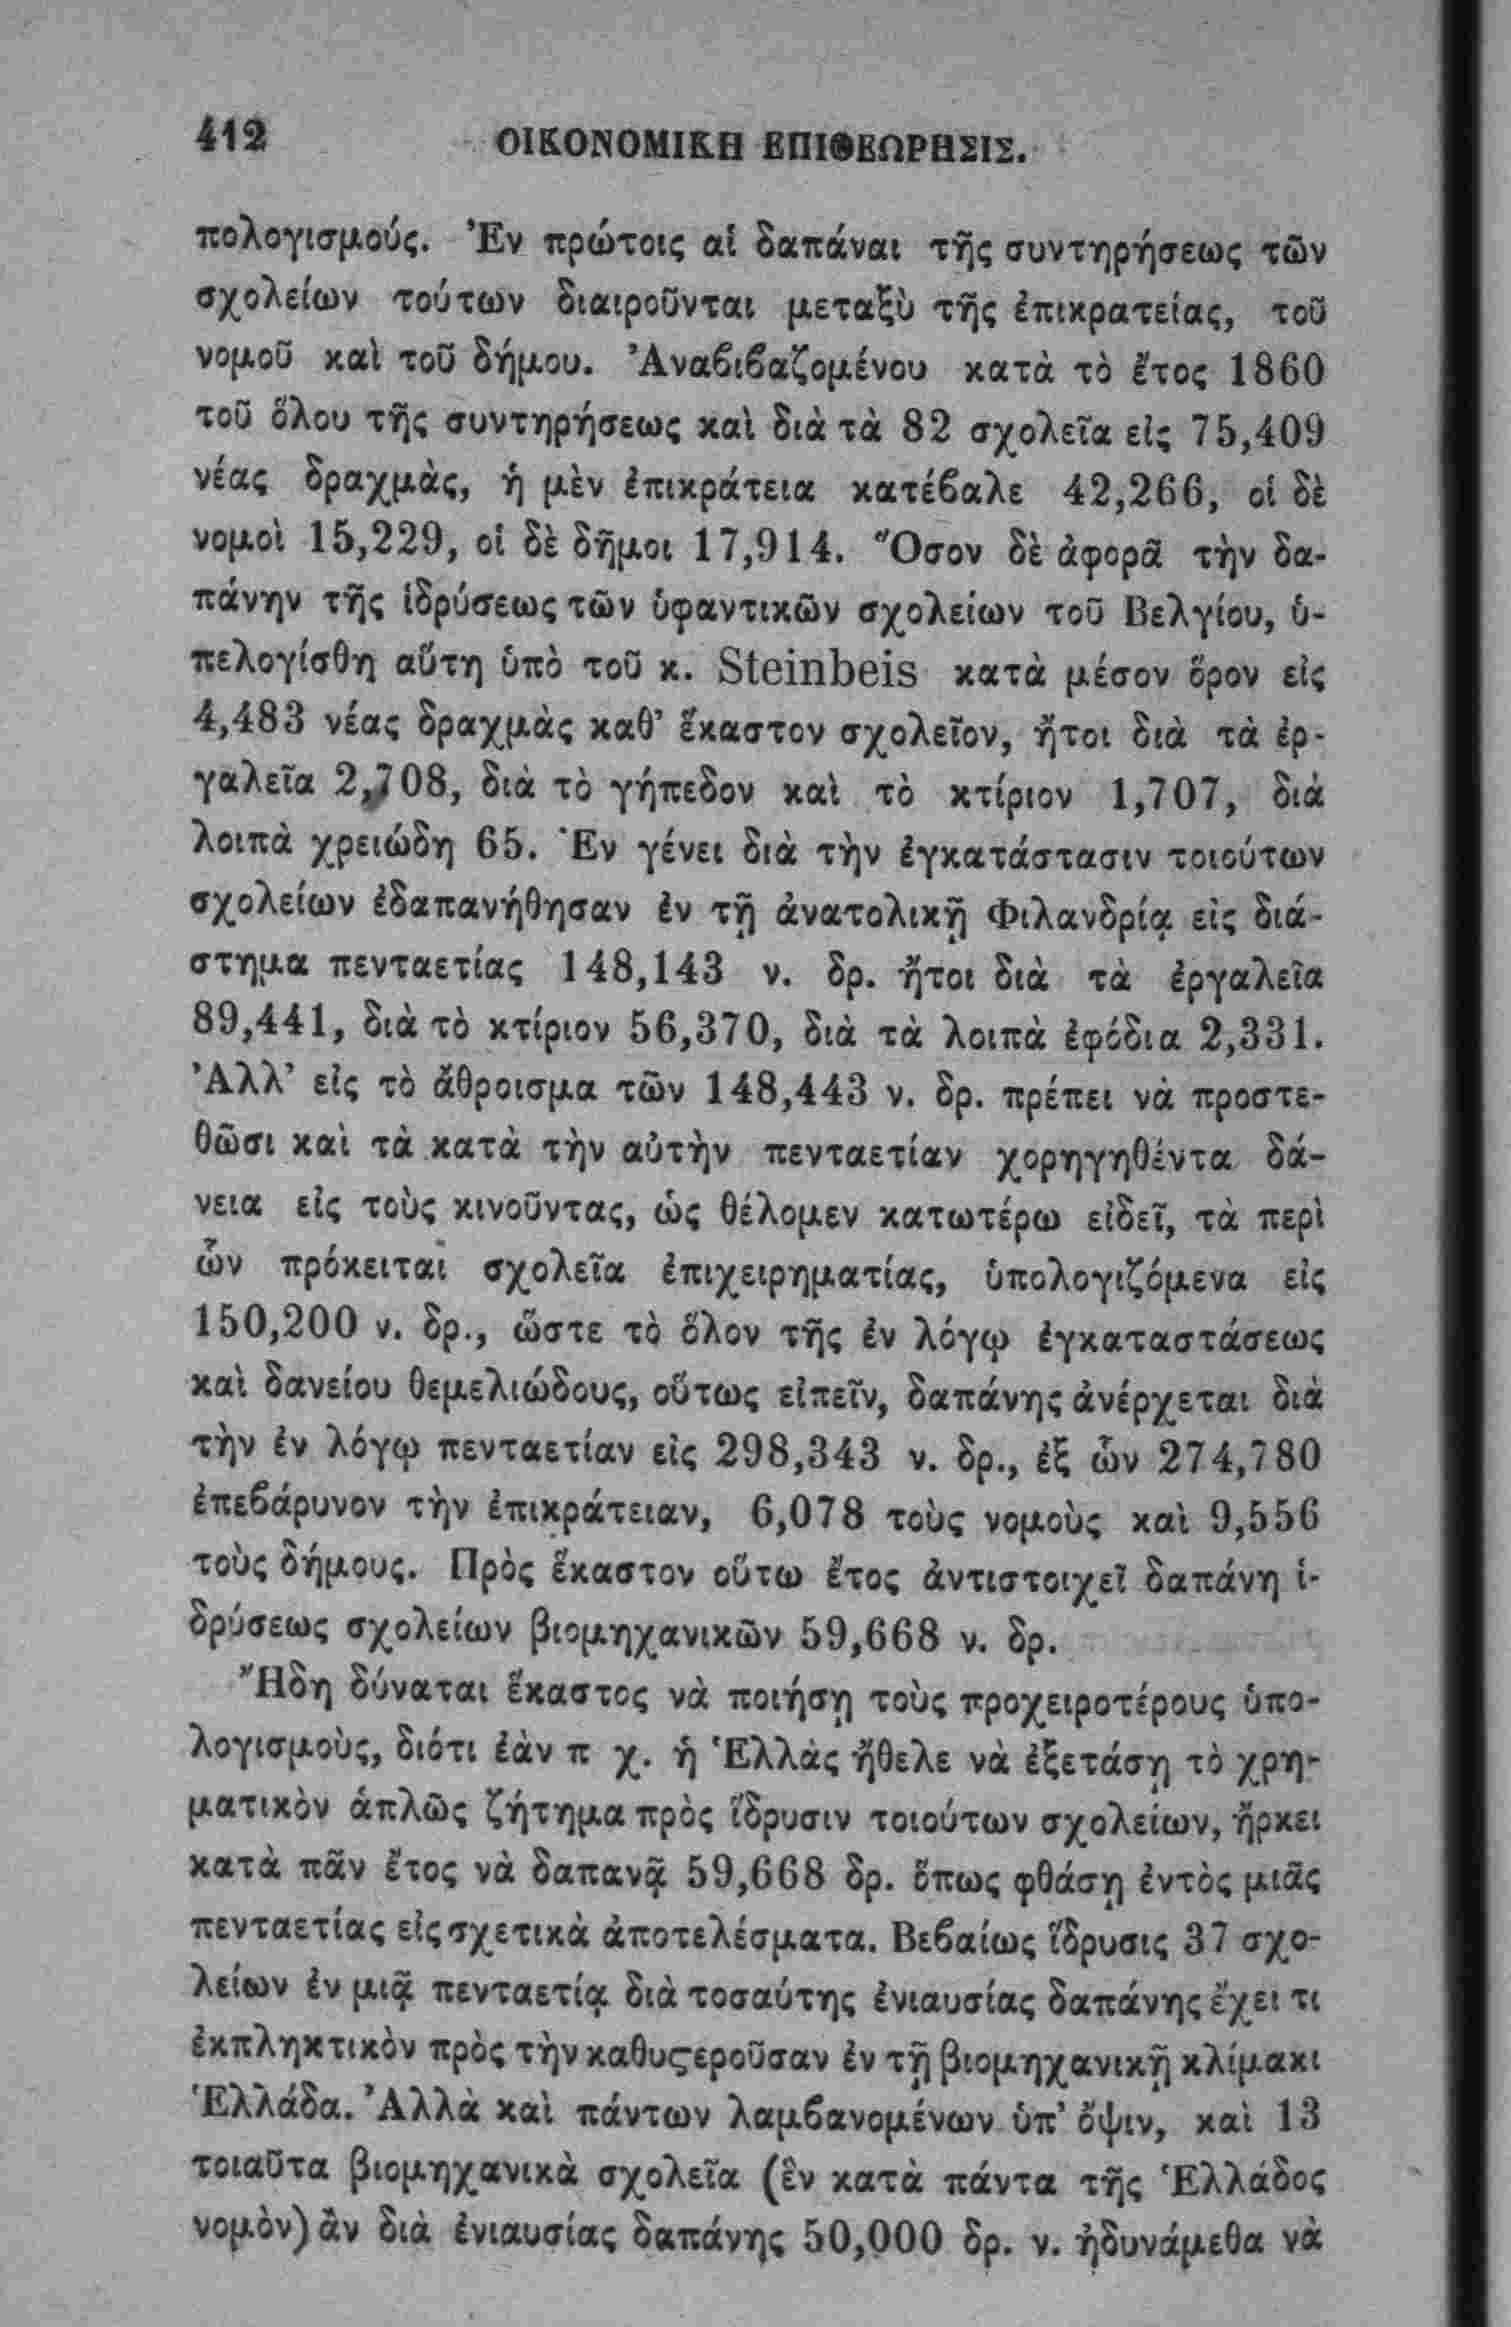 412 ΟΙΚΟΝΟΜΙΚΗ ΕΠΙΘΕΩΡΗΣΙΣ.
πολογισμούς. Ἐν πρώτοις αἱ δαπάναι τῆς συντηρήσεως τῶν
σχολείων τούτων διαιροῦνται μεταξὺ τῆς ἐπικρατείας, τοῦ
νομοῦ καὶ τοῦ δήμου. Ἀναβιβαζομένου κατὰ τὸ ἔτος 1860
τοῦ ὅλου τῆς συντηρήσεως καὶ διὰ τὰ 82 σχολεῖα εἰς 75,409
νέας δραχμὰς, ἡ μὲν ἐπικράτεια κατέβαλε 42,266, οἱ δὲ
νομοὶ 15,229, οἱ δὲ δῆμοι 17,914. Ὅσον δὲ ἀφορᾶ τὴν δα-
πάνην τῆς ἱδρύσεως τῶν ὑφαντικῶν σχολείων τοῦ Βελγίου, ὑ-
πελογίσθη αὕτη ὑπὸ τοῦ κ. Steinbeis κατὰ μέσον ὅρον εἰς
4,483 νέας δραχμὰς καθ’ ἕκαστον σχολεῖον, ἤτοι διὰ τὰ ἐρ-
γαλεῖα 2,708, διὰ τὸ γήπεδον καὶ τὸ κτίριον 1,707, διὰ
λοιπὰ χρειώδη 65. Ἐν γένει διὰ τὴν ἐγκατάστασιν τοιούτων
σχολείων ἐδαπανήθησαν ἐν τῇ ἀνατολικῇ Φιλανδρίᾳ εἰς διά-
στημα πενταετίας 148,143 ν. δρ. ἤτοι διὰ τὰ ἐργαλεῖα
89,441, διὰ τὸ κτίριον 56,370, διὰ τὰ λοιπὰ ἐφόδια 2,331.
Ἀλλ’ εἰς τὸ ἄθροισμα τῶν 148,443 ν. δρ. πρέπει νὰ προστε-
θῶσι καὶ τὰ κατὰ τὴν αὐτὴν πενταετίαν χορηγηθέντα δά-
νεια εἰς τοὺς κινοῦντας, ὡς θέλομεν κατωτέρω εἰδεῖ, τὰ περὶ
ὧν πρόκειται σχολεῖα ἐπιχειρηματίας, ὑπολογιζόμενα εἰς
150,200 ν. δρ., ὥστε τὸ ὅλον τῆς ἐν λόγῳ ἐγκαταστάσεως
καὶ δανείου θεμελιώδους, οὕτως εἰπεῖν, δαπάνης ἀνέρχεται διὰ
τὴν ἐν λόγῳ πενταετίαν εἰς 298,343 ν. δρ., ἐξ ὧν 274,780
ἐπεβάρυνον τὴν ἐπικράτειαν, 6,078 τοὺς νομοὺς καὶ 9,556
τοὺς δήμους. Πρὸς ἕκαστον οὕτω ἔτος ἀντιστοιχεῖ δαπάνη ἱ-
δρύσεως σχολείων βιομηχανικῶν 59,668 ν. δρ.
Ἤδη δύναται ἕκαστος νὰ ποιήσῃ τοὺς προχειροτέρους ὑπο-
λογισμοὺς, διότι ἐὰν π χ. ἡ Ἑλλὰς ἤθελε νὰ ἐξετάσῃ τὸ χρη-
ματικὸν ἁπλῶς ζήτημα πρὸς ἵδρυσιν τοιούτων σχολείων, ἤρκει
κατὰ πᾶν ἔτος νὰ δαπανᾷ 59,668 δρ. ὅπως φθάσῃ ἐντὸς μιᾶς
πενταετίας εἰς σχετικὰ ἀποτελέσματα. Βεβαίως ἵδρυσις 37 σχο-
λείων ἐν μιᾷ πενταετίᾳ διὰ τοσαύτης ἐνιαυσίας δαπάνης ἔχει τι
ἐκπληκτικὸν πρὸς τὴν καθυϛεροῦσαν ἐν τῇ βιομηχανικῇ κλίμακι
Ἑλλάδα. Ἀλλὰ καὶ πάντων λαμβανομένων ὑπ’ ὄψιν, καὶ 13
τοιαῦτα βιομηχανικὰ σχολεῖα (ἓν κατὰ πάντα τῆς Ἑλλάδος
νομὸν) ἂν διὰ ἐνιαυσίας δαπάνης 50,000 δρ. ν. ἠδυνάμεθα νὰ